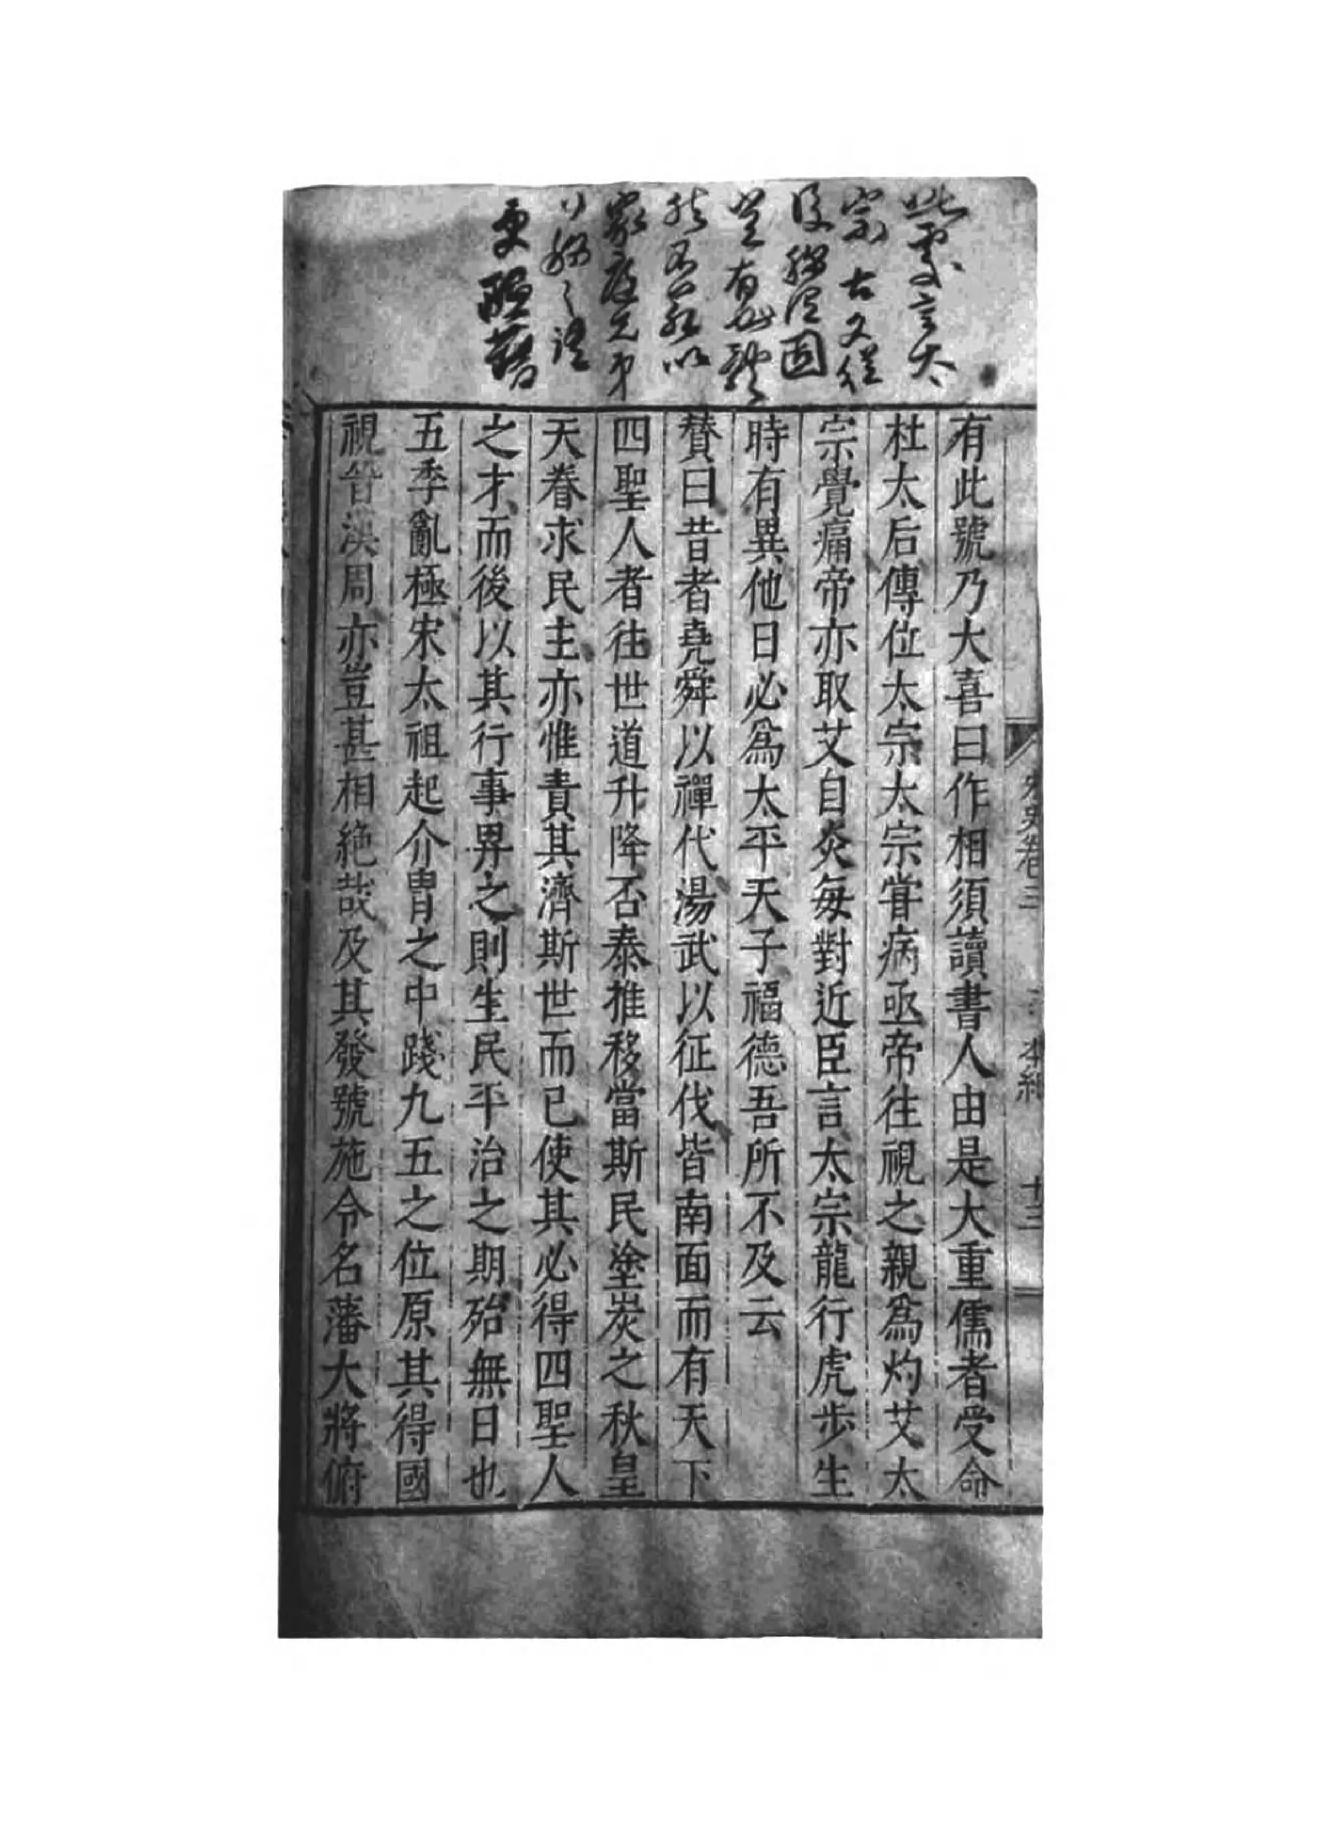 此處言太
宗古文從
后
豈有
然不若以
家庭兄弟
之語
更蘊藉
宋史卷三
本紀
十三
有此號乃大喜曰作相須讀書人由是大重儒者受命
杜太后傳位太宗太宗甞病亟帝往視之親爲灼艾太
宗覺痛帝亦取艾自灸每對近臣言太宗龍行虎步生
時有異他日必爲太平天子福德吾所不及云
贊曰昔者堯舜以禪代湯武以征伐皆南面而有天下
四聖人者往世道升降否泰推移當斯民塗炭之秋皇
天眷求民主亦惟責其濟斯世而已使其必得四聖人
之才而後以其行事畀之則生民平治之期殆無日也
五季亂極宋太祖起介胄之中踐九五之位原其得國
視晉漢周亦豈甚相絶哉及其發號施令名藩大將俯